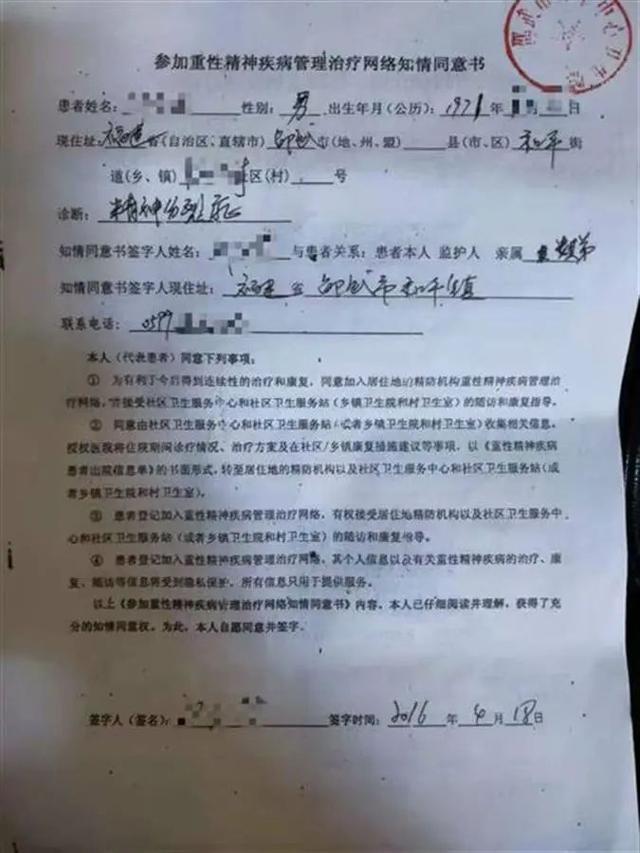 参加重性精神疾病管理治疗网络知情同意书
患者姓名: 性别: 男 出生年月(公历): 1971 年 日
现住址: 福建 省(自治区、直辖市) 邵武 市(地、州、盟) 县(市、区) 和平 街
道(乡、镇) 社区(村) 号
诊断: 精神分裂症
知情同意书签字人姓名: 与患者关系: 患者本人 监护人 亲属
知情同意书签字人现住址: 福建省邵武市和平镇
联系电话: 0599
本人(代表患者)同意下列事项:
① 为有利于今后得到连续性的治疗和康复,同意加入居住地的精防机构重性精神疾病管理治
疗网络,并接受社区卫生服务中心和社区卫生服务站(乡镇卫生院和村卫生室)的随访和康复指导。
② 同意由社区卫生服务中心和社区卫生服务站(或者乡镇卫生院和村卫生室)收集相关信息。
授权医院将住院期间诊疗情况、治疗方案及在社区/乡镇康复措施建议等事项,以《重性精神疾病
患者出院信息单》的书面形式,转至居住地的精防机构以及社区卫生服务中心和社区卫生服务站(或
者乡镇卫生院和村卫生室)。
③ 患者登记加入重性精神疾病管理治疗网络,有权接受居住地精防机构以及社区卫生服务中
心和社区卫生服务站(或者乡镇卫生院和村卫生室)的随访和康复指导。
④ 患者登记加入重性精神疾病管理治疗网络,其个人信息以及有关重性精神疾病的治疗、康
复、随访等信息将受到隐私保护,所有信息只用于提供服务。
以上《参加重性精神疾病管理治疗网络知情同意书》内容,本人已仔细阅读并理解,获得了充
分的知情同意权。为此,本人自愿同意并签字。
签字人(签名): 签字时间: 2016 年 4 月 18 日